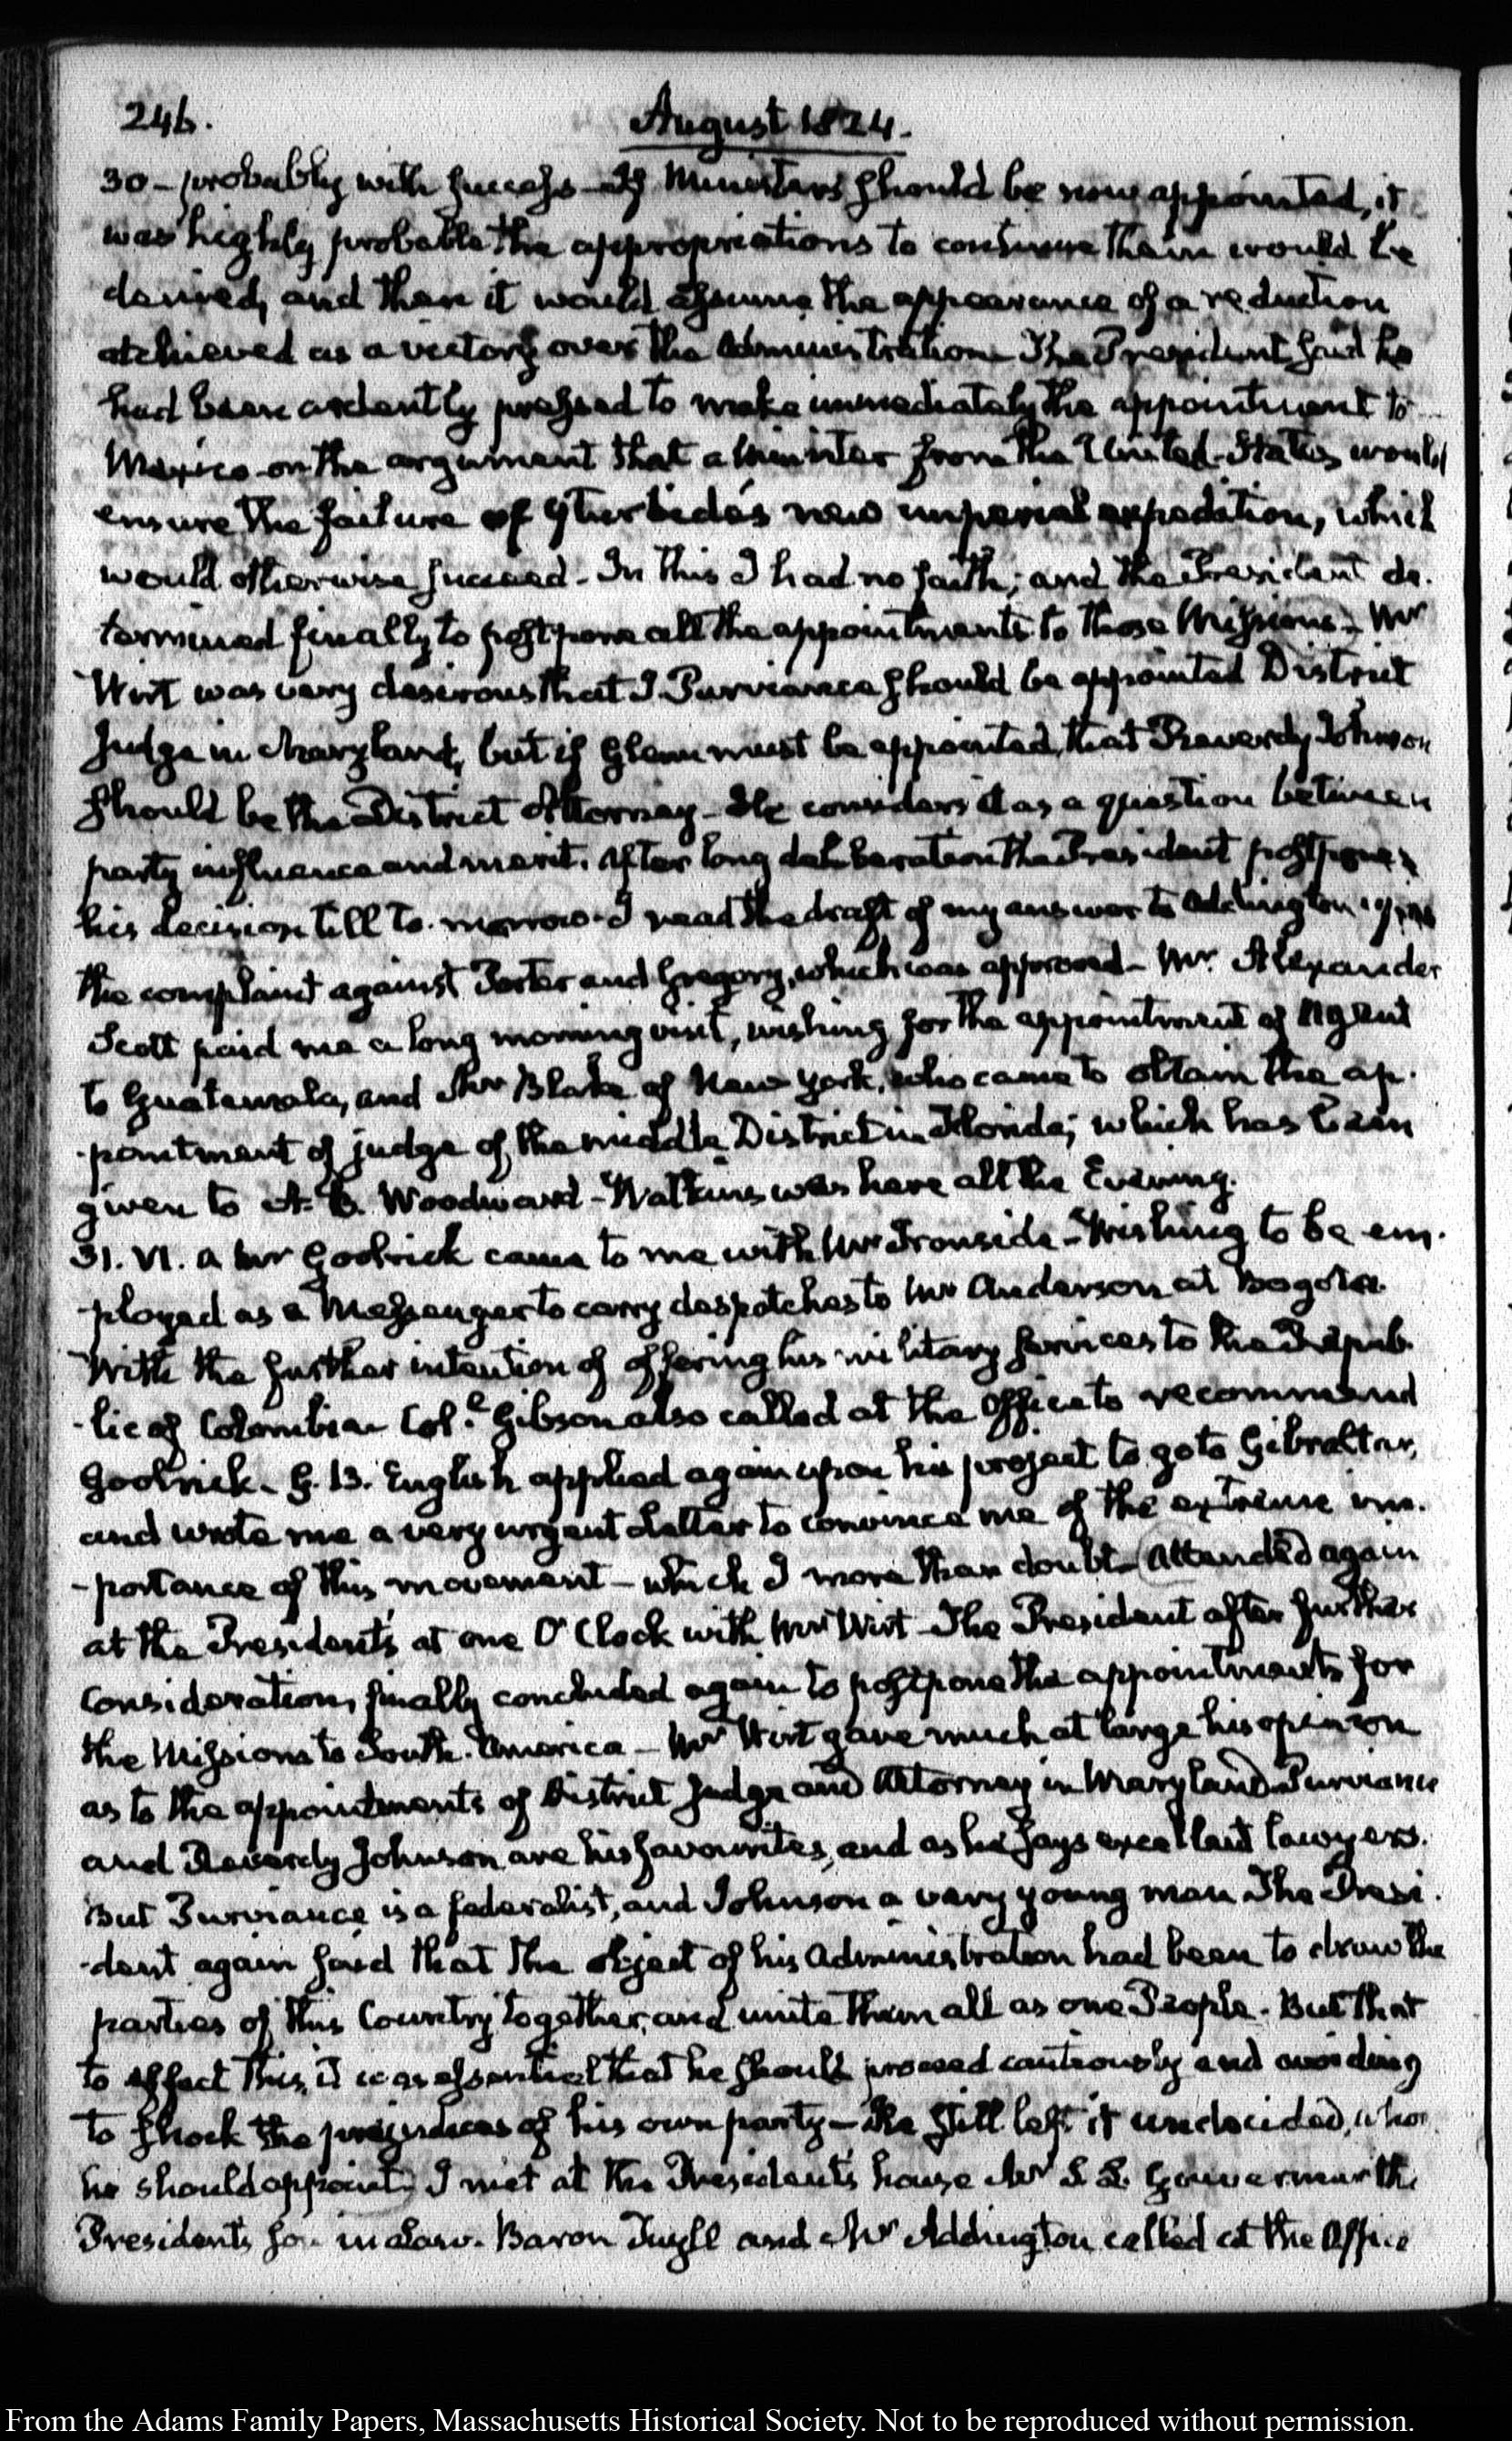 246.
August 1824.
30 - probably with success - If Ministers should be now appointed, it
was highly probable the appropriations to continue them would be
denied, and then it would assume the appearance of a reduction
atchieved as a victory over the Administration - The President said he
had been ardently pressed to make immediately the appointment to
Mexico - on the argument that a Minister from the United-States would
ensure the failure of Yturbide's new imperial expedition, which
would otherwise succeed - In this I had no faith; and the President de-
termined finally to postpone all the appointments to those Missions - Mr
Wirt was very desirous that J. Purviance should be appointed District
Judge in Maryland, but if Glenn must be appointed, that Reverdy Johnson
should be the District Attorney - He considers it as a question between
party influence and merit. After long deliberation the President postpones
his decision till to-morrow - I read the draft of my answer to Addington upon
the complaint against Porter and Gregory, which was approved - Mr. Alexander
Scott paid me a long morning visit, wishing for the appointment of Agent
to Guatemala, and Mr Blake of New York, who came to obtain the ap-
-pointment of judge of the middle District in Florida; which has been
given to A. B. Woodward - Watkins was here all the Evening.
31. VI. A Mr Goolrick came to me with Mr Ironside - Wishing to be em-
-ployed as a Messenger to carry despatches to Mr Anderson at Bogota.
With the further intention of offering his military services to the Repub-
-lic of Colombia - Col.l Gibson also called at the Office to recommend
Goolrick - G. B. English applied again upon his project to go to Gibraltar,
and wrote me a very urgent Letter to convince me of the extreme im-
-portance of this movement - which I more than doubt - Attended again
at the President's at one O'Clock with Mr Wirt - The President after further
Consideration, finally concluded again to postpone the appointments for
the Missions to South-America - Mr Wirt gave much at large his opinion
as to the appointments of District Judge and Attorney in Maryland - Purviance
and Reverdy Johnson are his favourites, and as he says excellent lawyers.
But Purviance is a federalist, and Johnson a very young man The Presi-
-dent again said that the object of his Administration had been to draw the
parties of this Country together, and unite them all as one People - But that
to effect this, it was essential that he should proceed cautiously and avoiding
to shock the prejudices of his own party - He still left it undecided, whom
he should appoint. I met at the President's house Mr S. L. Gouverneur the
President's son in Law. Baron Tuyll and Mr Addington called at the Office
From the Adams Family Papers, Massachusetts Historical Society. Not to be reproduced without permission.